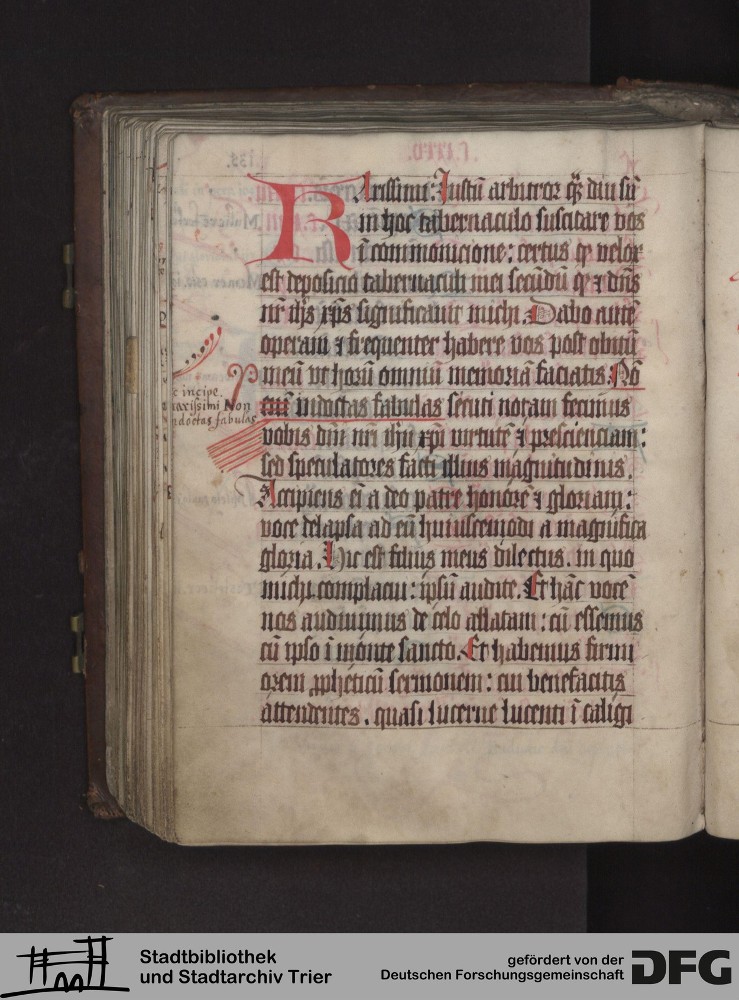 Karissimi: Justū arbitror qͣdiu sū
in hoc tabernaculo suscitare vos
ī commonicione: certus qꝫ velox
est deposicio tabernaculi mei secūdū qꝫ ⁊ dn̄s
nr̄ ihs̄ xp̄s significauit michi. Dabo autē
operam ⁊ frequenter habere vos post obitū
meū vt horū omniū memoriā faciatis. Nō
enī indoctas fabulas secuti notam fecimus
vobis dn̄i nr̄i ihū xp̄i virtutē ⁊ prescienciam:
sed speculatores facti illius magnitudinis.
Accipiens eī a deo patre honorē ⁊ gloriam:
voce delapsa ad eū huiuscemodi a magnifica
gloria. Hic est filius meus dilectus. in quo
michi complacui: ipsū audite. Et hāc vocē
nos audiuimus de celo allatam: cū essemus
cū ipso ī monte sancto. Et habemus firmi
orem ꝓpheticū sermonem: cui benefacitis
attendentes. quasi lucerne lucenti ī caligi
incipe
karissimi Non
indoctas fabulas
Stadtbibliothek
und Stadtarchiv Trier
gefördert von der
Deutschen Forschungsgemeinschaft
DFG